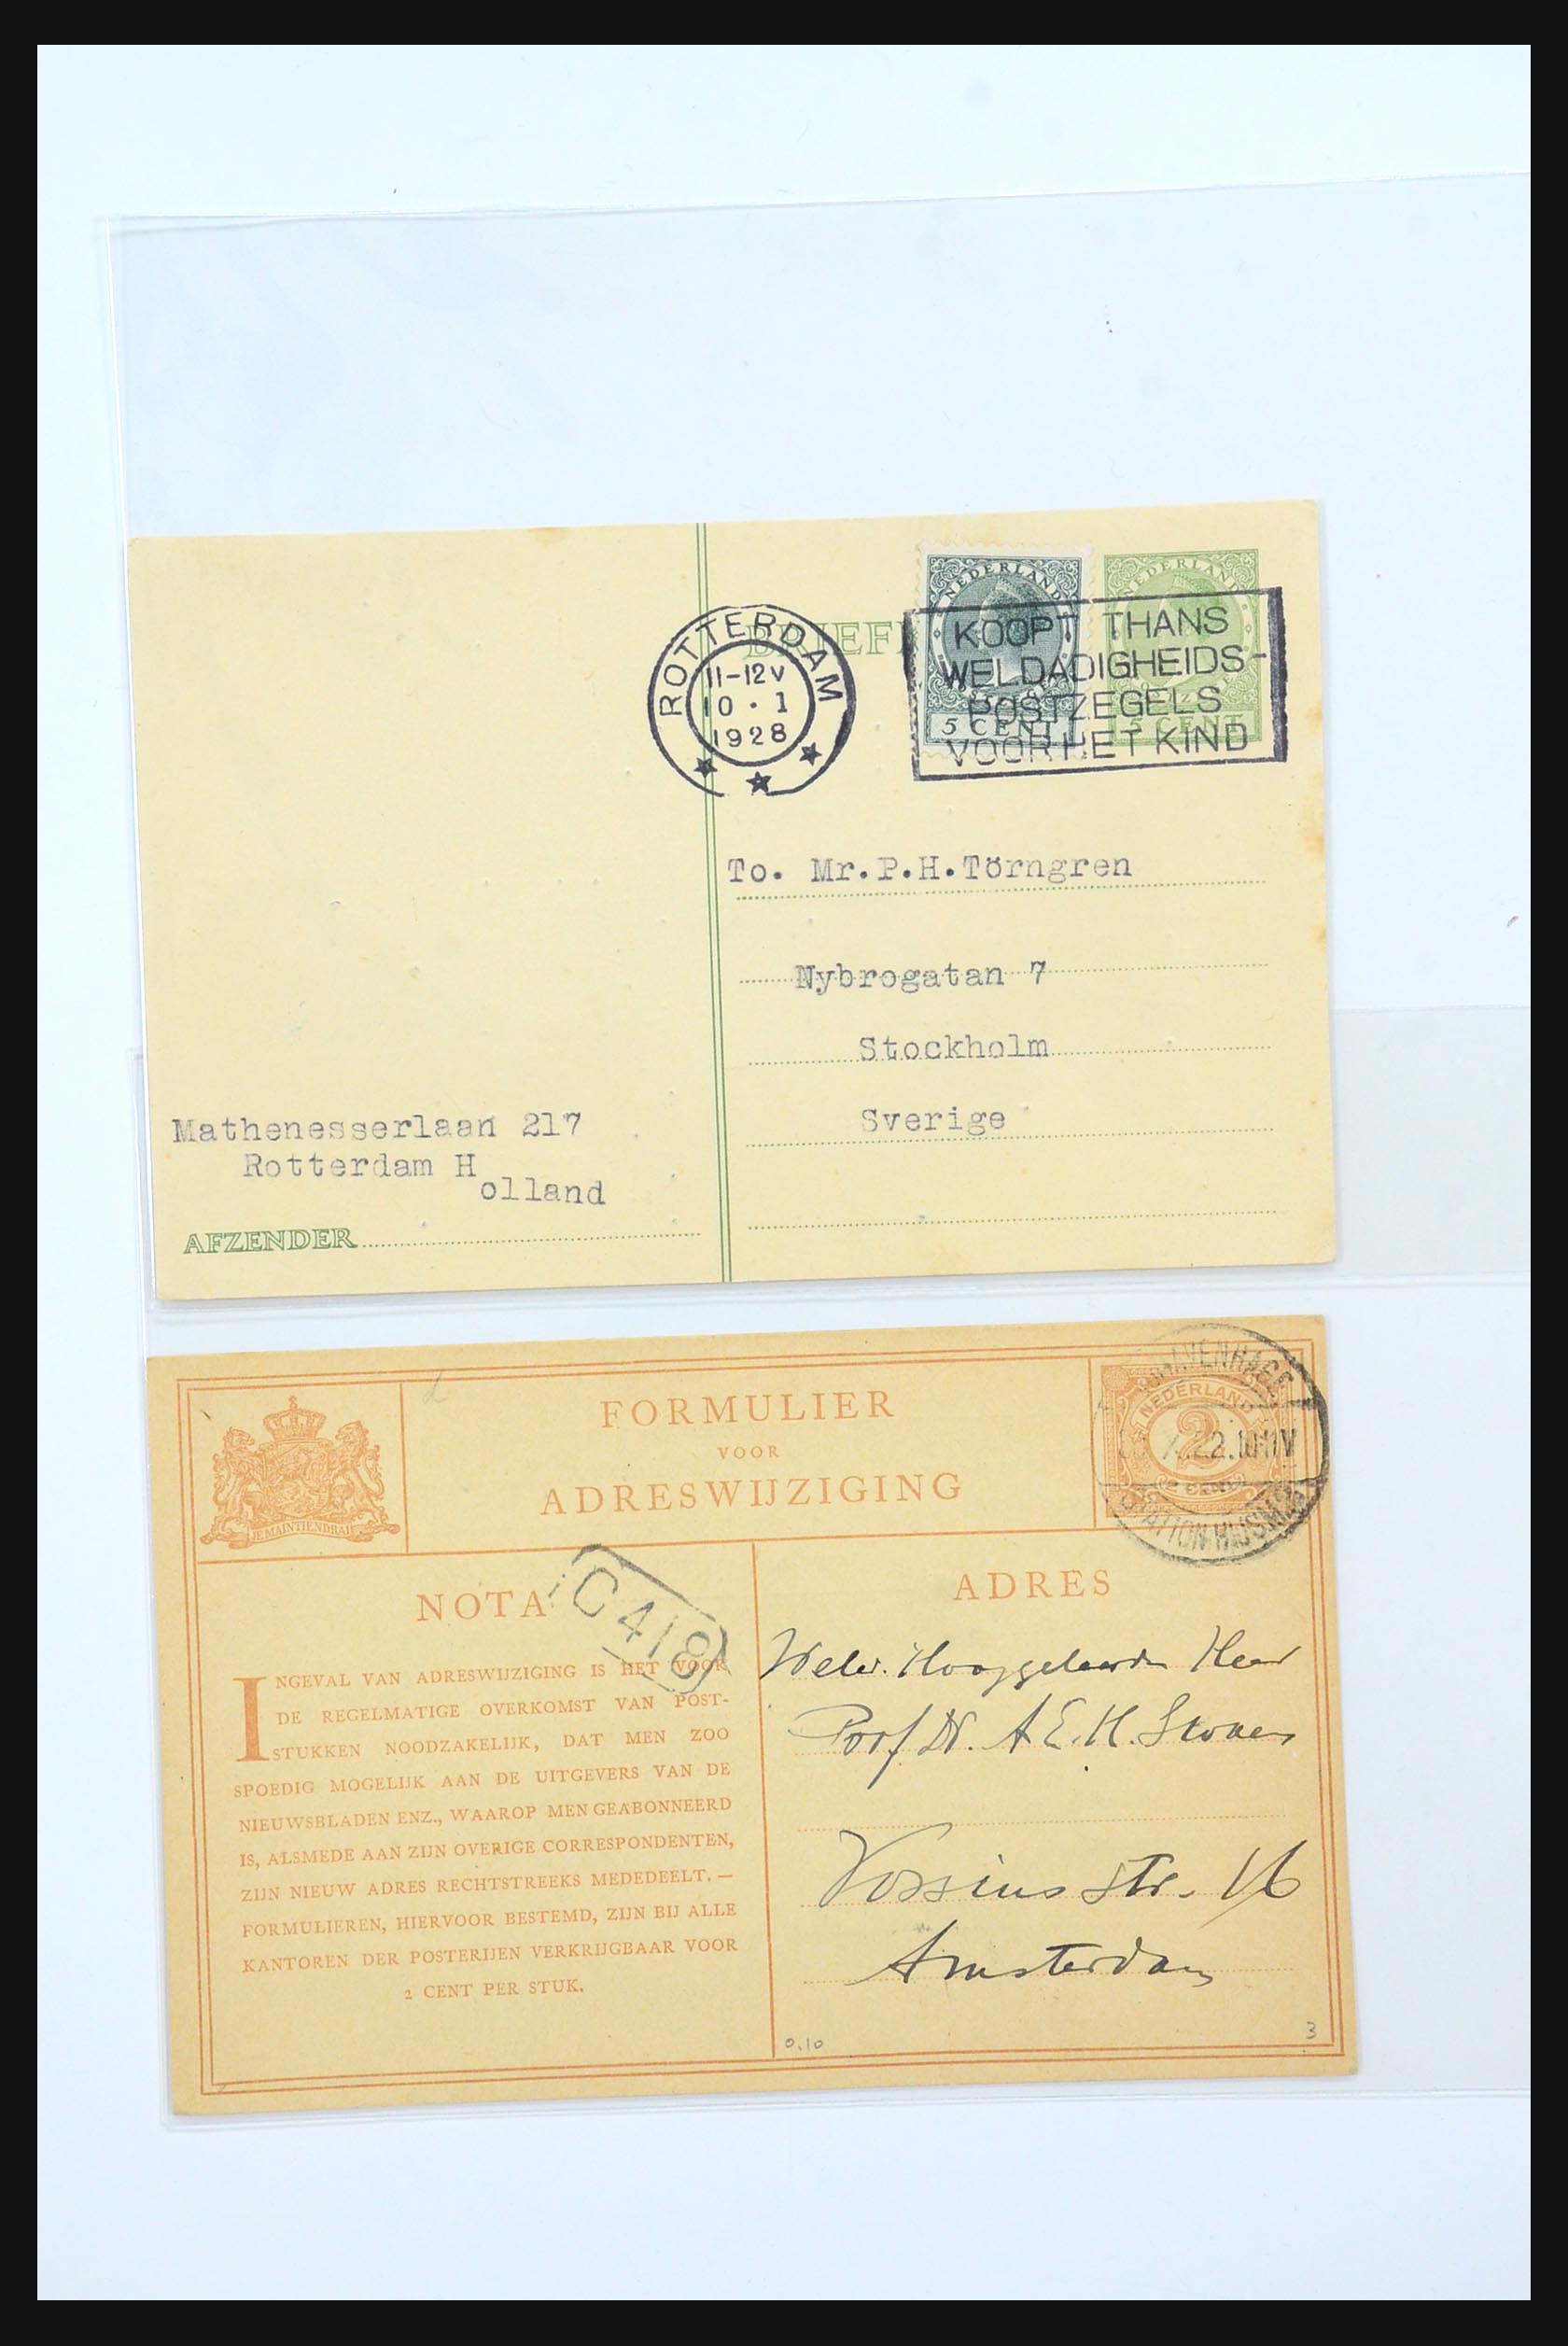 BRIEF
NEDERLAND
5 CENT
NEDERLAND
5 CENT
ROTTERDAM
11-12V
10 · 1
1928
KOOPT THANS
WELDADIGHEIDS-
POSTZEGELS
VOOR HET KIND
To. Mr.P.H.Törngren
Nybrogatan 7
Stockholm
Sverige
Mathenesserlaan 217
Rotterdam H
olland
AFZENDER
JE MAINTIENDRAI
FORMULIER
VOOR
ADRESWIJZIGING
NEDERLAND
2
22.10-11V
STATION H.IJ.S.M.
NOTA
C418
INGEVAL VAN ADRESWIJZIGING IS HET VOOR
DE REGELMATIGE OVERKOMST VAN POST-
STUKKEN NOODZAKELIJK, DAT MEN ZOO
SPOEDIG MOGELIJK AAN DE UITGEVERS VAN DE
NIEUWSBLADEN ENZ., WAAROP MEN GEABONNEERD
IS, ALSMEDE AAN ZIJN OVERIGE CORRESPONDENTEN,
ZIJN NIEUW ADRES RECHTSTREEKS MEDEDEELT. —
FORMULIEREN, HIERVOOR BESTEMD, ZIJN BIJ ALLE
KANTOREN DER POSTERIJEN VERKRIJGBAAR VOOR
2 CENT PER STUK.
ADRES
Heer
Prof. Dr. A.E.H.
Vossius str. 16
Amsterdam
0.10
3